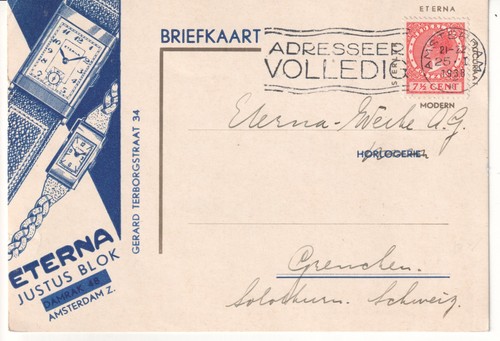 ETERNA
BRIEFKAART
ADRESSEER
VOLLEDIG
AMSTERDAM
1938
7½ CENT
MODERN
Eterna-Werke A.G.
HORLOGERIE
Grenchen.
Solothurn. Schweiz.
GERARD TERBORGSTRAAT 34
ETERNA
JUSTUS BLOK
DAMRAK 48
AMSTERDAM Z.